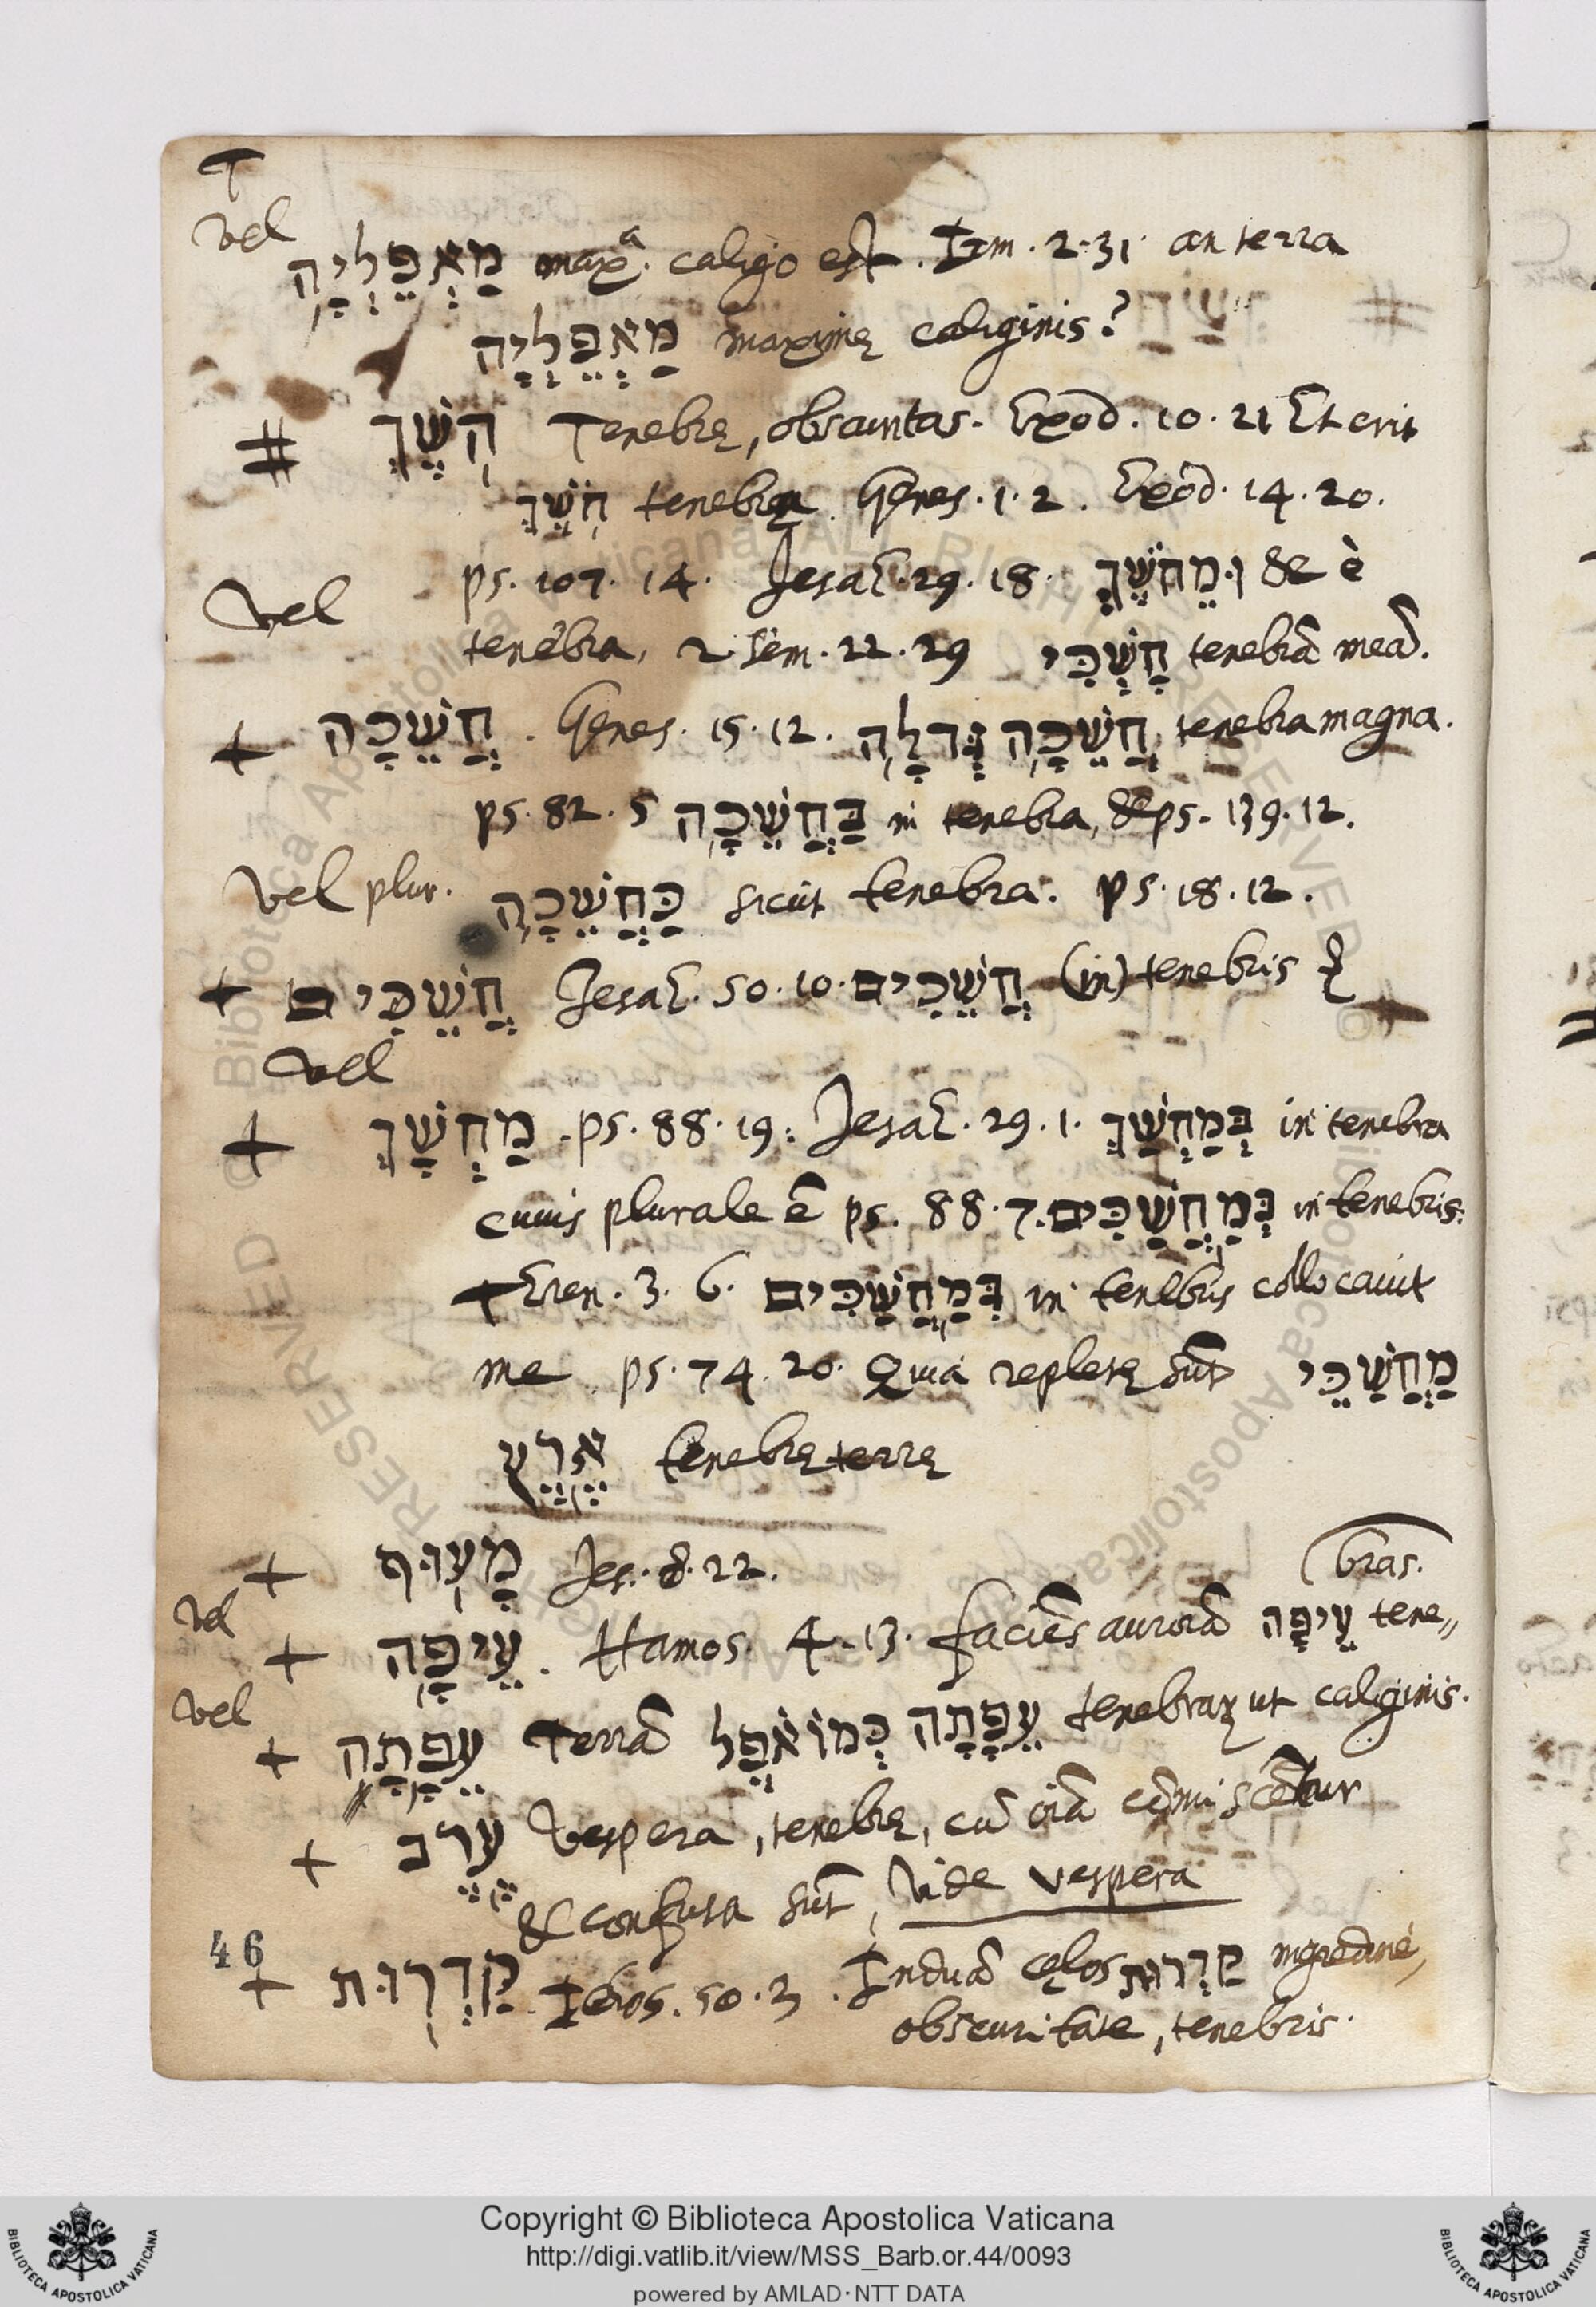 T
vel
מַאְפֵּלְיָה maxᵃ. caligo est. Irm. 2.31. an terra
מַאְפֵּלְיָה maximę caliginis?
# חשֶׁךְ Tenebrę, obscuritas. Exod. 10. 21 Et erit
חשֶׁךְ tenebra. Genes. 1. 2. Exod. 14. 20.
ps. 107. 14. Jesai. 29. 18. וּמֵחשֶׁךְ & è
vel tenebra, 2 Sem. 22. 29 חָשְׁכִּי tenebrā meā.
+ חֲשֵׁכָה. Genes. 15. 12. חֲשֵׁכָה גְּדלָה tenebra magna.
ps. 82. 5 בַּחֲשֵׁכָה in tenebra, & ps. 139. 12.
vel plur. כַּחֲשֵׁכָה sicut tenebra. ps. 18. 12.
+ חֲשֵׁכִים Jesai. 50. 10. חֲשֵׁכִים (in) tenebris
vel
+ מַחְשָׁךְ. ps. 88. 19: Jesai. 29. 1. בְּמַחְשַׁךְ in tenebra
cuius plurale ē ps. 88. 7. בְּמַחֲשַׁכִּים in tenebris:
+ Eren. 3. 6. בְּמַחֲשַׁכִּים in tenebris collocauit
me ps. 74. 20. Quia repletę sūt מַחֲשַׁכֵּי
אֶרֶץ tenebrę terrę
+ מָעוּף Jes. 8. 22.
bras.
vel
+ עֵיפָה. Hamos. 4. 13. faciēs aurorā עֵיפָה tene„
vel
+ עֵפָתָה Terrā עֵפָתָה כְּמוֹ אֹפֶל tenebrarꝫ ut caliginis.
+ עֶרֶב Vespera, tenebrę, cū oīa cōmiscētur
& confusa sūt, vide vespera
46
+ קַדְרוּת Ieos. 50. 3. Induā cęlos קַדְרוּת
obscuritate, tenebris.
Copyright © Biblioteca Apostolica Vaticana
http://digi.vatlib.it/view/MSS_Barb.or.44/0093
powered by AMLAD·NTT DATA
BIBLIOTECA APOSTOLICA VATICANA
BIBLIOTECA APOSTOLICA VATICANA